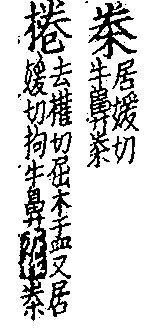 桊
居媛切
牛鼻桊
棬
去權切屈木盂又居
媛切拘牛鼻桊